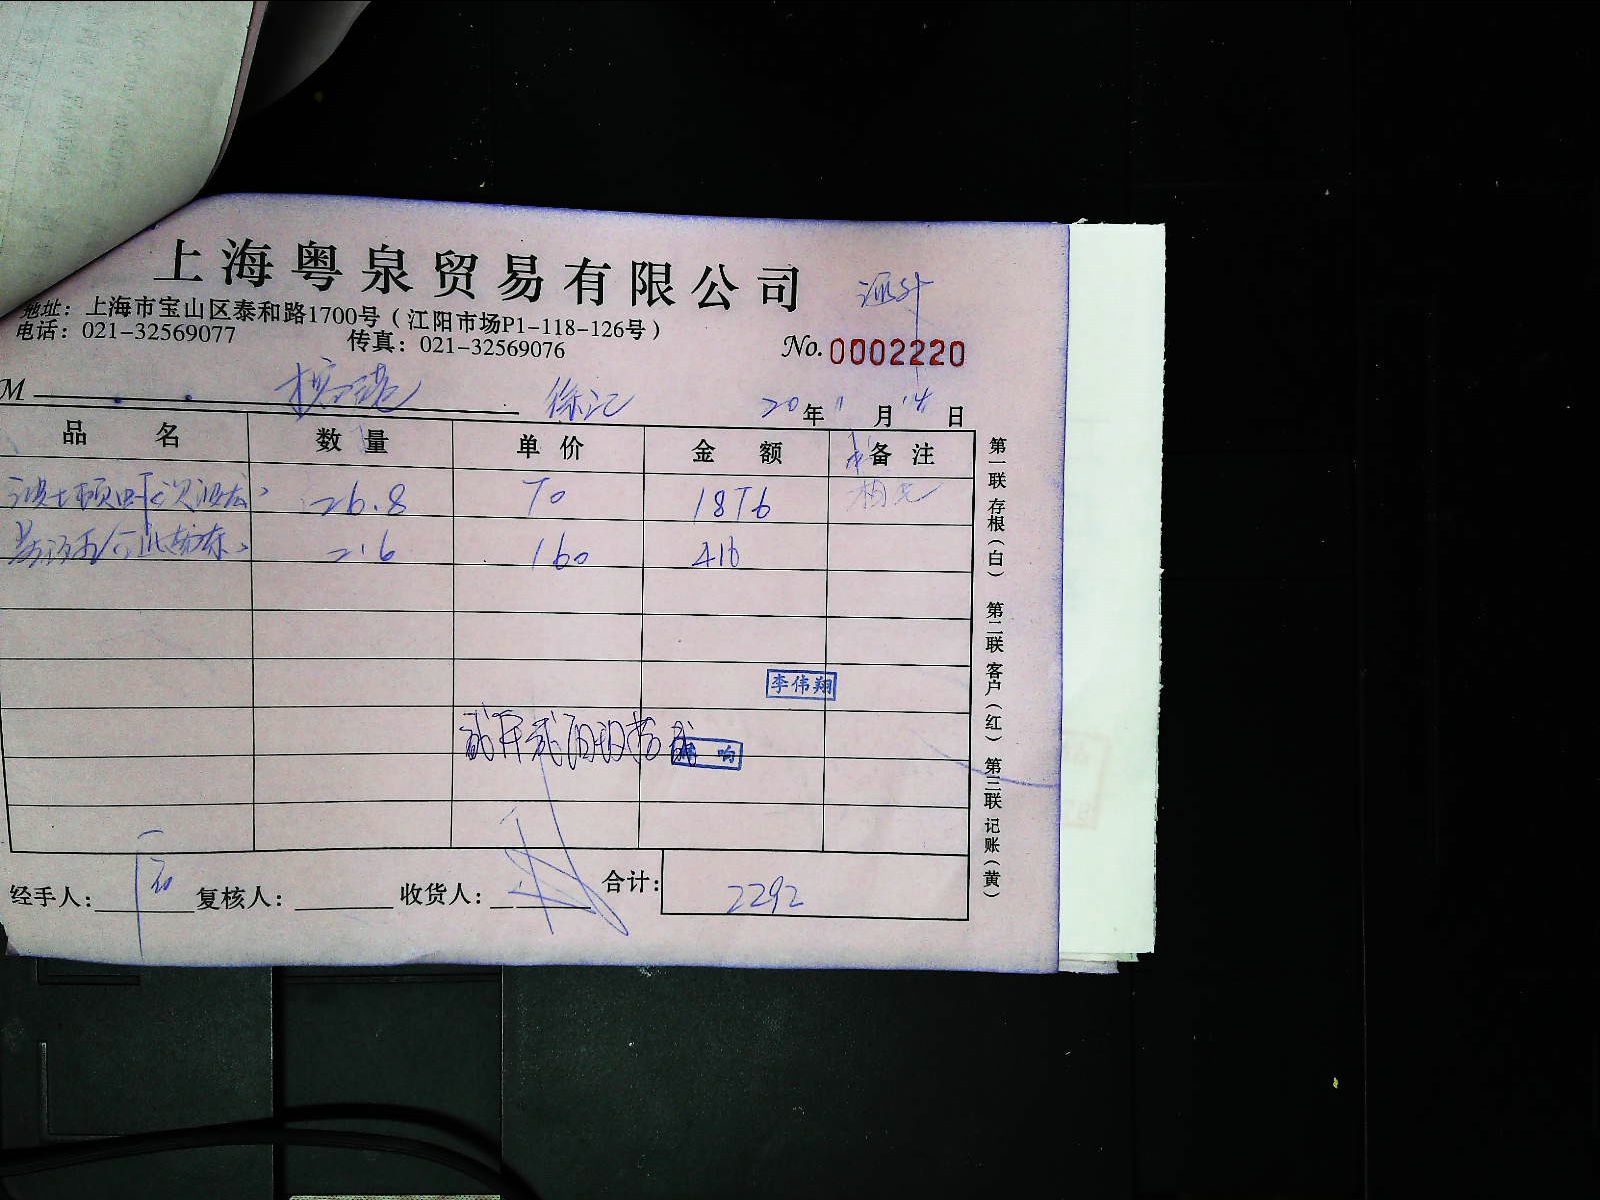 上海粤泉贸易有限公司
地址：上海市宝山区泰和路1700号（江阳市场P1-118-126号）
电话：021-32569077 传真：021-32569076
No. 0002220
M 徐汇 20年11月14日
品名 数量 单价 金额 备注
26.8 70 1876
2.6 160 416
李伟翔
贰仟贰佰玖拾贰
响
经手人： 复核人： 收货人： 合计：2292
第一联 存根（白） 第二联 客户（红） 第三联 记账（黄）